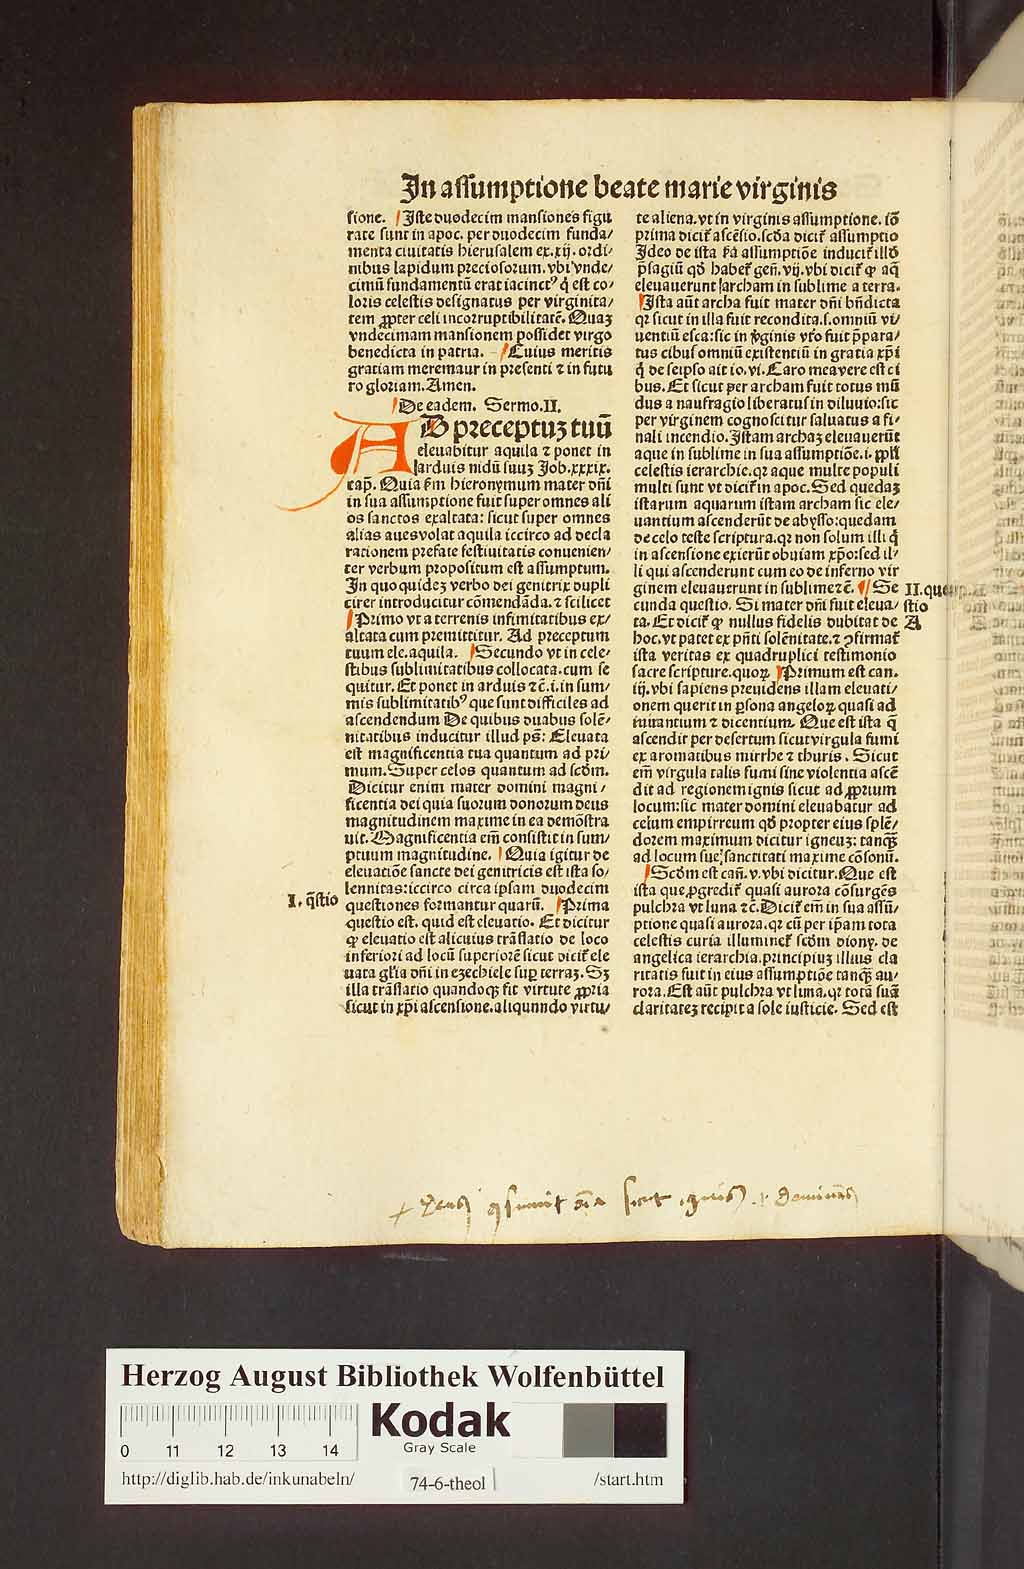 In assumptione beate marie virginis
sione. Iste duodecim mansiones figu
rate sunt in apoc. per duodecim funda/
menta ciuitatis hierusalem ex.xij. ordi/
nibus lapidum preciosorum. vbi vnde/
cimū fundamentū erat iacinctꝰ q̇ est co/
loris celestis designatus per virginita/
tem ꝓpter celi incorruptibilitatē. Quaʒ
vndecimam mansionem possidet virgo
benedicta in patria. Cuius meritis
gratiam meremaur in presenti ⁊ in futu
ro gloriam. Amen.
De eadem. Sermo.II.
AD preceptuʒ tuū
eleuabitur aquila ⁊ ponet in
arduis nidū suuʒ Job.xxxix.
cap̄. Quia ẜm hieronymum mater dn̄i
in sua assumptione fuit super omnes ali
os sanctos exaltata: sicut super omnes
alias aues volat aquila iccirco ad decla
rationem prefate festiuitatis conuenien/
ter verbum propositum est assumptum.
In quo quideʒ verbo dei genitrix dupli
citer introducitur cōmendāda. ⁊ scilicet
Primo vt a terrenis infimitatibus ex/
altata cum premittitur. Ad preceptum
tuum ele. aquila. Secundo vt in cele/
stibus sublimitatibus collocata. cum se
quitur. Et ponet in arduis ⁊c̄. i. in sum/
mis sublimitatibꝰ que sunt difficiles ad
ascendendum De quibus duabus solē/
nitatibus inducitur illud ps̄: Eleuata
est magnificentia tua quantum ad pri/
mum. Super celos quantum ad scd̄m.
Dicitur enim mater domini magni/
ficentia dei quia suorum donorum deus
magnitudinem maxime in ea demōstra
uit. Magnificentia em̄ consistit in sum/
ptuum magnitudine. Quia igitur de
eleuatiōe sancte dei genitricis est ista so/
lennitas: iccirco circa ipsam duodecim
questiones formantur quarū. Prima
questio est. quid est eleuatio. Et dicitur
ꝙ eleuatio est alicuius trāslatio de loco
inferiori ad locū superiorē sicut dicit̄ ele
uata gl̄ia dn̄i in ezechiele suꝑ terraʒ. Sʒ
illa trāslatio quandoqʒ fit virtute ꝓpria
sicut in xp̄i ascensione. aliqunndo virtu/
I. q̄stio
te aliena. vt in virginis assumptione. iō
prima dicit̄ ascēsio. scd̄a dicit̄ assumptio
Ideo de ista ẜa assumptiōe inducit̄ illd̄
p̄sagiū qd̄ habet̄ gen̄. vij. vbi dicit̄ ꝙ aq̄
eleuauerunt archam in sublime a terra.
Ista aūt archa fuit mater dn̄i bn̄dicta
qꝛ sicut in illa fuit recondita. s. omniū vi/
uentiū esca: sic in v̄ginis vt̄o fuit p̄para/
tus cibus omniū existentiū in gratia xp̄i
q̇ de seipso ait io. vi. Caro mea vere est ci
bus. Et sicut per archam fuit totus mū
dus a naufragio liberatus in diluuio: sic
per virginem cognoscitur saluatus a fi/
nali incendio. Istam archaʒ eleuauerūt
aque in sublime in sua assumptiōe. i. ppl̄i
celestis ierarchie. qꝛ aque multe populi
multi sunt vt dicit̄ in apoc. Sed quedaʒ
istarum aquarum istam archam sic ele/
uantium ascenderūt de abysso: quedam
de celo teste scriptura. qꝛ non solum illi q̇
in ascensione exierūt obuiam xp̄o: sed il/
li qui ascenderunt cum eo de inferno vir
ginem eleuauerunt in sublime ⁊c̄. Se
cunda questio. Si mater dn̄i fuit eleua/
ta. Et dicit̄ ꝙ nullus fidelis dubitat de
hoc. vt patet ex pn̄ti solēnitate. ⁊ ꝯfirmat̄
ista veritas ex quadruplici testimonio
sacre scripture. quoꝝ Primum est can.
iij. vbi sapiens preuidens illam eleuati/
onem querit in ꝑsona angeloꝝ quasi ad
iuuantium ⁊ dicentium. Que est ista q̄
ascendit per desertum sicut virgula fumi
ex aromatibus mirrhe ⁊ thuris. Sicut
em̄ virgula talis fumi sine violentia ascē
dit ad regionem ignis sicut ad ꝓprium
locum: sic mater domini eleuabatur ad
celum empirreum qd̄ propter eius splē/
dorem maximum dicitur igneuʒ: tanqʒ
ad locum sue sanctitati maxime cōsonū.
Scd̄m est can̄. v. vbi dicitur. Que est
ista que ꝓgredit̄ quasi aurora cōsurgēs
pulchra vt luna ⁊c̄. Dicit̄ em̄ in sua assū/
ptione quasi aurora. qꝛ cū per ip̄am tota
celestis curia illuminet̄ scd̄m diony. de
angelica ierarchia. principiuʒ illius cla
ritatis fuit in eius assumptiōe tanqʒ au/
rora. Est aūt pulchra vt luna. qꝛ totā suā
claritateʒ recipit a sole iusticie. Sed est
II. que
stio
A
Herzog August Bibliothek Wolfenbüttel
0 11 12 13 14
Kodak
Gray Scale
http://diglib.hab.de/inkunabeln/
74-6-theol
/start.htm